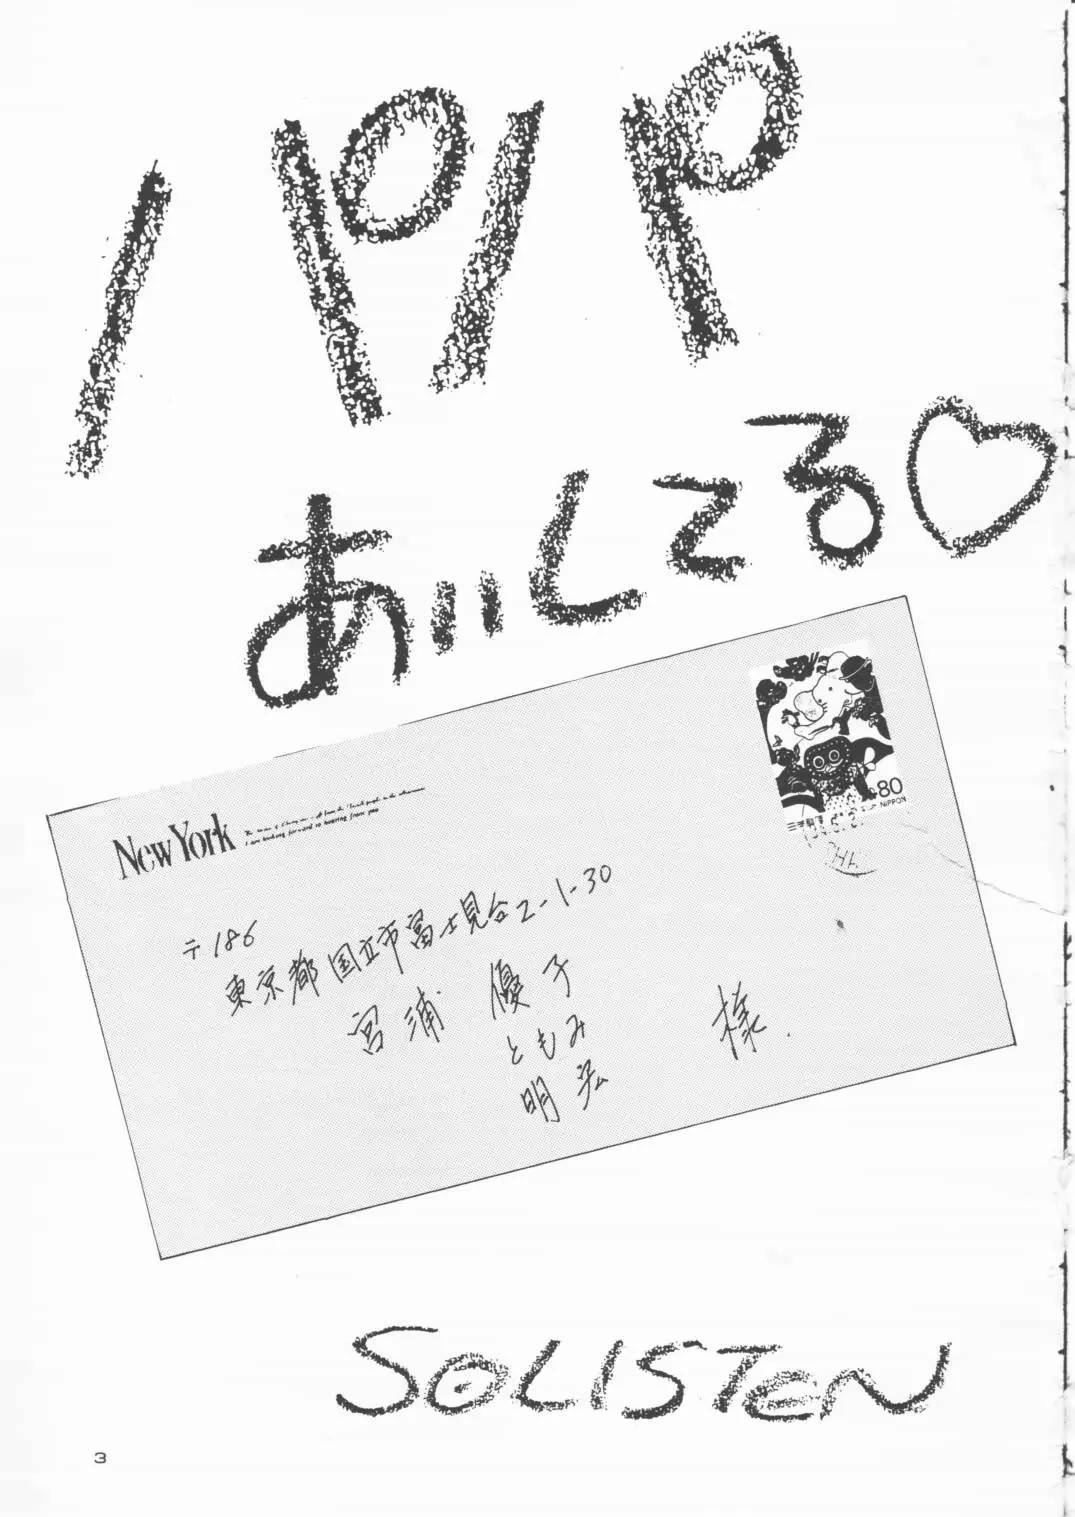 パパ
あいしてる♡
New York
I am looking forward to hearing from you
80
NIPPON
〒186
東京都国立市富士見台2-1-30
宮浦 優子
ともみ
明弘
様
SOLISTEN
3